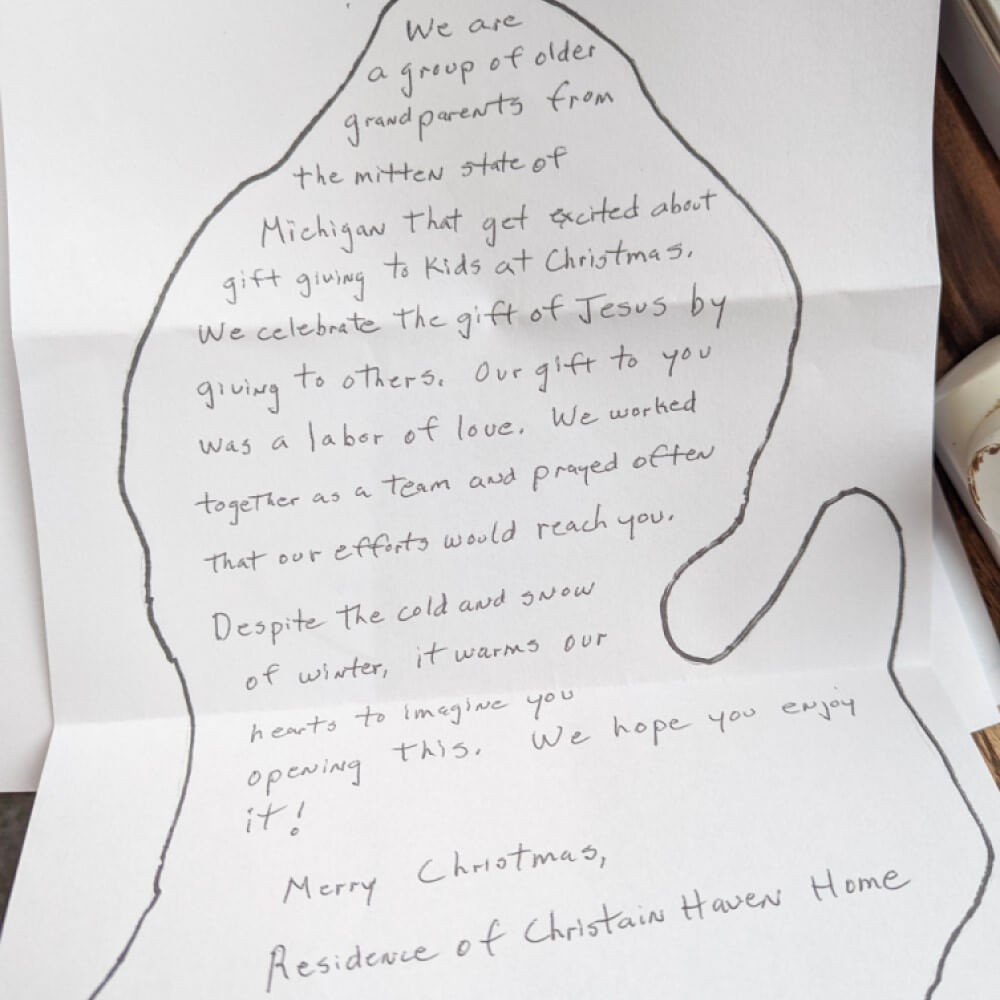 We are
a group of older
grandparents from
the mitten state of
Michigan that get excited about
gift giving to kids at Christmas.
We celebrate the gift of Jesus by
giving to others. Our gift to you
was a labor of love. We worked
together as a team and prayed often
that our efforts would reach you.
Despite the cold and snow
of winter, it warms our
hearts to imagine you
opening this. We hope you enjoy
it!
Merry Christmas,
Residence of Christain Haven Home